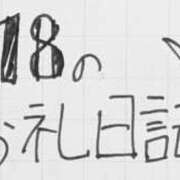 18の
お礼日記